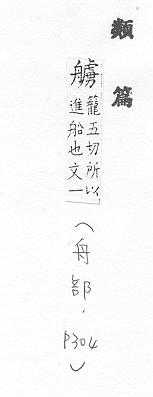 類篇
艣籠五切所以
進船也文一
(舟部，P304)